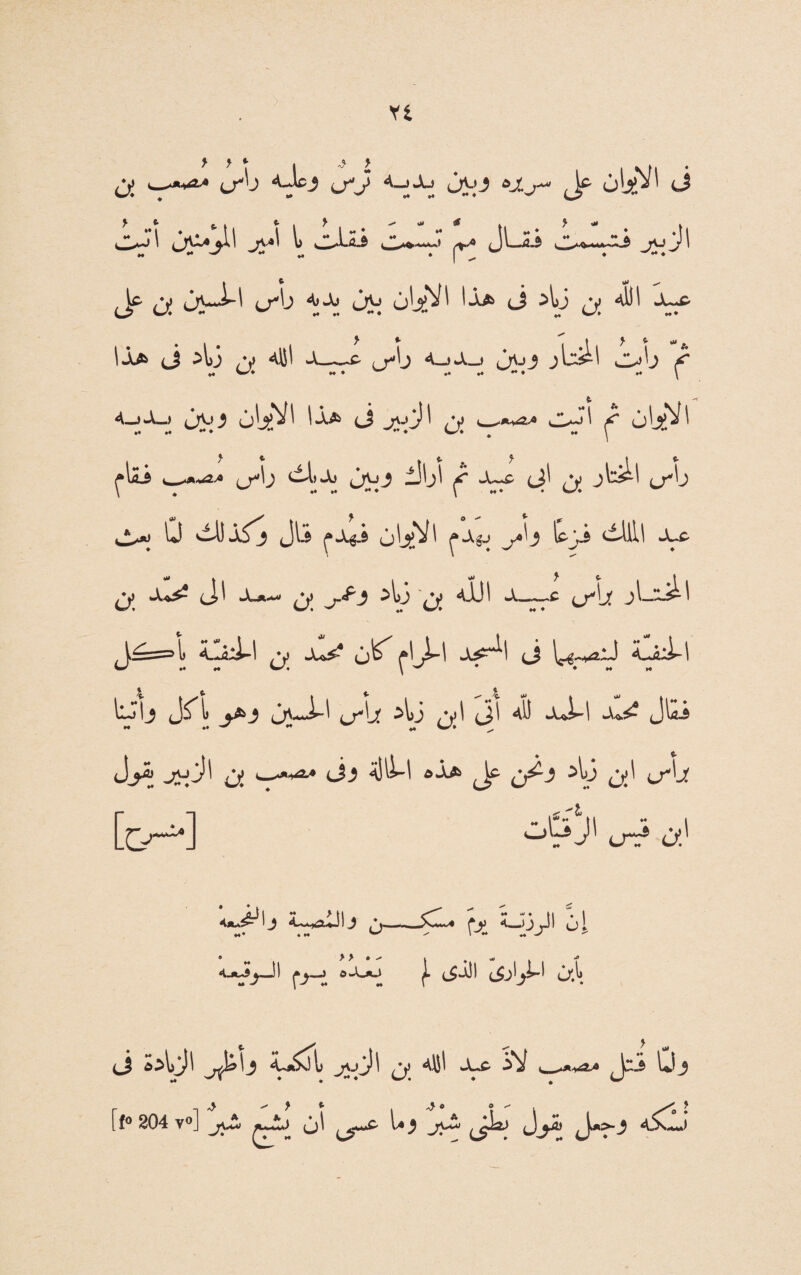 ٢٤
فى الايوان على سريره وبين يديه تُرسٌ وعليه رأسُ مُصعبُ بن
الزبير فتبسّمتُ فقال ممَّ تبسّمتَ فقلتُ يا أمير المؤمنين أتيتُ
عبيدَ الله بن زياد فى هذا الايوان بين يديه رأس الحسين بن على
ثمّ رأيتُ المختار وبين يديه رأسُ عُبيد الله بن زياد فى هذا
الايوان ثم أتيت مصعب بن الزبير فى هذا الايوان وبين يديه
رأس المختار بن ابى عُبيد ثم أراك وبين يديك رأسُ مصعب فقام
عبد الملك فزعًا وأمر بهَدْمِ الايوان فهُدم قال وكذلك لمّا بعث
المختار برأسِ عُبيد الله بن زياد وعُمر بن سعد الى محمّد بن
الحنفيّة لينصبها فى المسجد الحرام كان محمّد بن الحنفيّة يأكل
فقال محمّد الحمد لله أُتىَ ابن زياد برأس الحسين وهو يأكل وأُتينا
برأس ابن زياد ونحن على هذه الحالة وفى مصعب بن الزبير يقول
ابن قيس الرُّقيَّات [منسرح]
إنّ الرزيّةَ يومَ مسكِن والمُصيبةَ والفجيعهْ
بآبن الحَوارىّ الذى لم يَعْدُهُ يومُ الوقيعهْ
ولمّا قُتل مصعب لاذَ عبد الله بن الزبير بالكعبة وأظهر الزيادة فى
نُسُكه وجعل يقول بَطْنِى شِبْرٌ وما عسى أن يُشبع شبر [f° 204 v°]